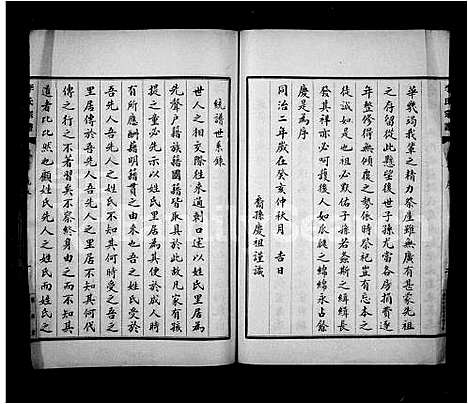 華幾竭我輩之精力祭產雖無廣有甚蒙先祖
之存留從此懸望後世子孫尤需各房捐貲逐
年整修得無傾覆之勢依時祭祀豈有忘本之
年祖必默佑子孫若螽斯之緝緝長
發其祥亦必呵護後人如瓜瓞之綿綿永占餘
慶是為序
同治二年歲在癸亥仲秋月 吉日
裔孫慶祖謹識
統譜世系錄
世人之相交際往來通刺口述以姓氏里居為
先聲戶籍族籍國籍皆取具於此故凡家有孩
提之童必先示以姓氏里居其便於成人時
有所應酬籍明籍貫之由來也吾之姓氏受於
吾先人吾先人之姓氏不知其何時受之吾之
里居傳於吾先人吾先人之里居不知其何代
傳之行之不著習矣不察終身由之而不知其
道者比比然也顧姓氏先人之姓氏而姓氏之